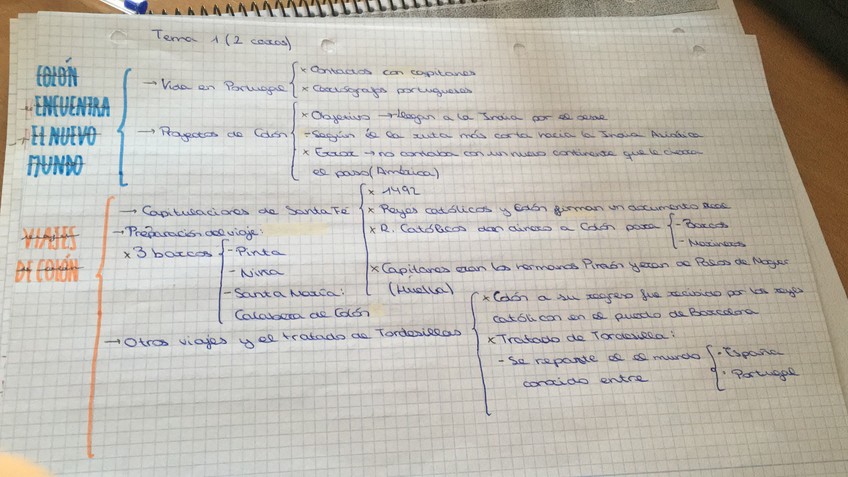 Tema 1 (2 caras)
COLÓN
ENCUENTRA
EL NUEVO
MUNDO
→ Vida en Portugal
× Contactos con capitanes
× Cartógrafos portugueses
→ Proyectos de Colón
× Objetivo → llegar a la India por el oeste
- Según él la ruta más corta hacia la India Asiática
× Error → no contaba con un nuevo continente que le cierra
el paso (América)
VIAJES
DE COLÓN
→ Capitulaciones de Santa Fé
× 1492
× Reyes católicos y Colón firman un documento
× R. Católicos dan dinero a Colón para
- Barcos
- Marineros
× Capitanes eran los hermanos Pinzón y eran de Palos de Moguer
(Huelva)
→ Preparación del viaje:
× 3 barcos
- Pinta
- Nina
- Santa María:
Calabera de Colón
→ Otros viajes y el tratado de Tordesillas
× Colón a su regreso fue recibido por los reyes
católicos en el puerto de Barcelona
× Tratado de Tordesilla:
- Se reparte el mundo
conocido entre
- España
- Portugal